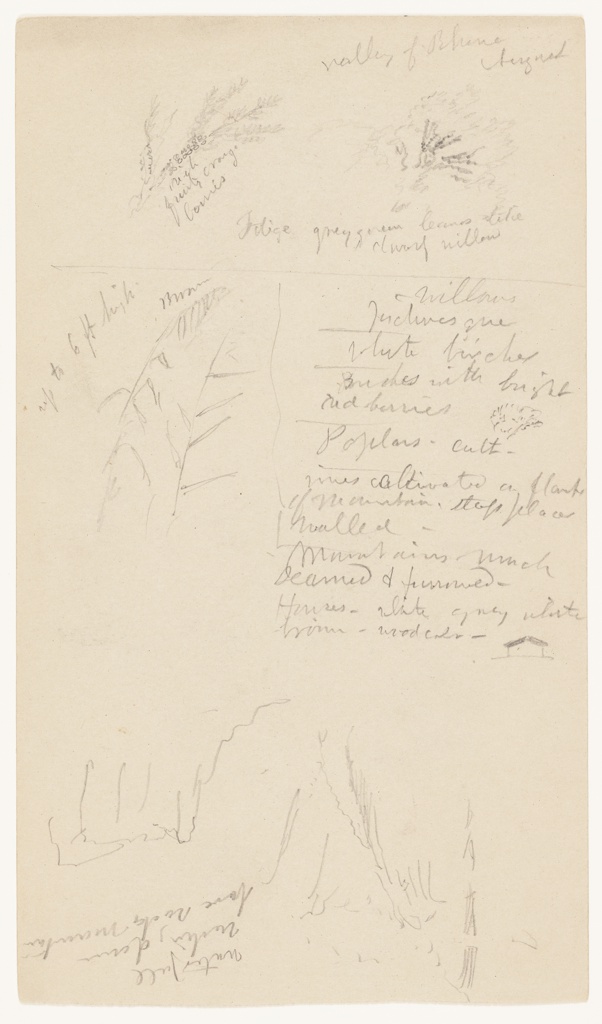 valley of Rhone
August
high
orange
up to 6 ft high
grey green leaves like
dwarf willow
willows
Picturesque
white birches
Bushes with bright
red berries
Poplars - cult -
vines cultivated on flank
of mountain. steep places
walled -
Mountains much
seamed & furrowed -
Houses - white grey white
brown - wood color -
waterfall
rushing down
bare rocky mountain